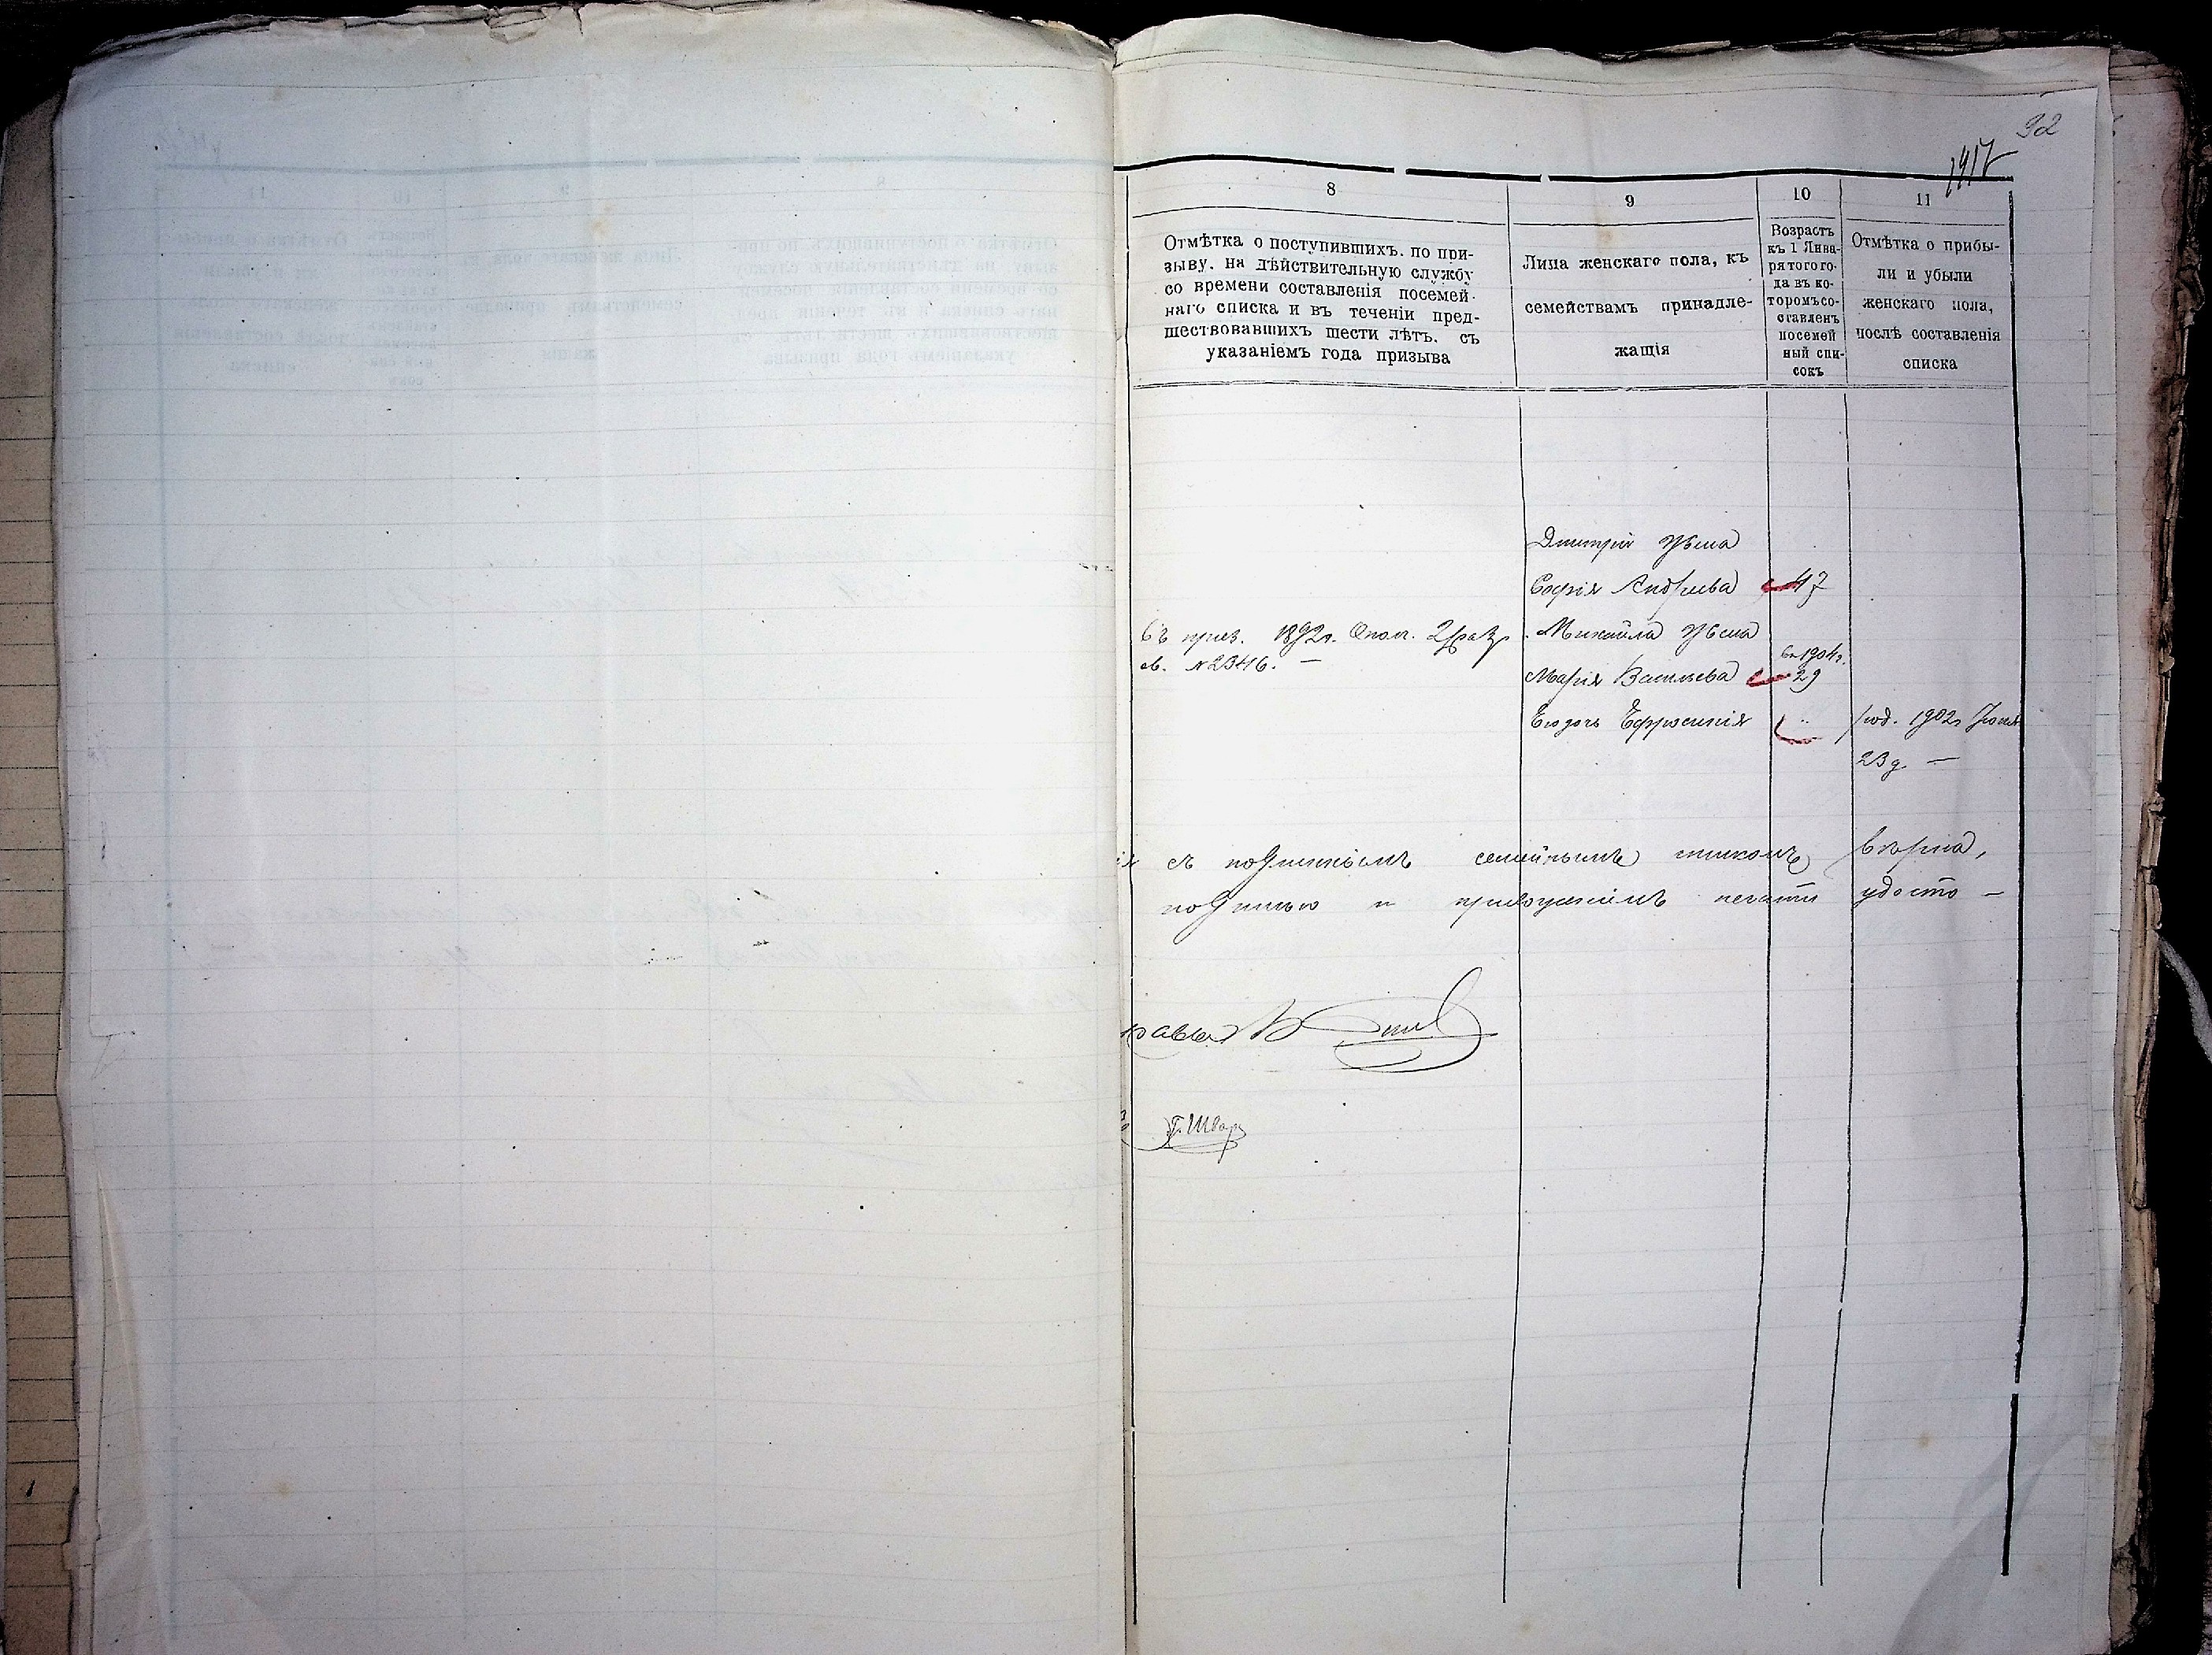 92
1917
8
9
10
11
Отмѣтка о поступившихъ. по при-
зыву. на дѣйствительную службу
со времени составленія посемей-
наго списка и въ теченіи пред-
шествовавшихъ шести лѣтъ. съ
указаніемъ года призыва
Лица женскаго пола, къ
семействамъ принадле-
жащія
Возрастъ
къ 1 Янва-
ря того го-
да въ ко-
торомъ со-
ставленъ
посемей
ный спи-
сокъ
Отмѣтка о прибы-
ли и убыли
женскаго пола,
послѣ составленія
списка
Дмитрія жена
Софія Андреева 47
Въ приз. 1892г. Опол. 2 раз. Михаила жена
св. №2346. — въ 1904г.
Марія Васильева 29
Ея дочь Ефросинія " род. 1902г Іюня
23 д. —
съ подлиннымъ семейнымъ спискомъ вѣрна,
подписью и приложеніемъ печати удосто —
Г. Швар